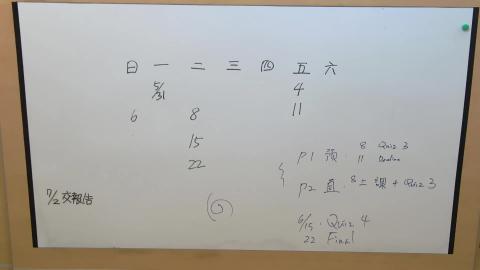 日 一 二 三 四 五 六
5/31 4
6 8 11
15
22
P1 预. 8 Quiz 3
11 Deadline
P2 直. 8 上 課 + Quiz 3
7/2 交報告
6/15. Quiz 4
22 Final